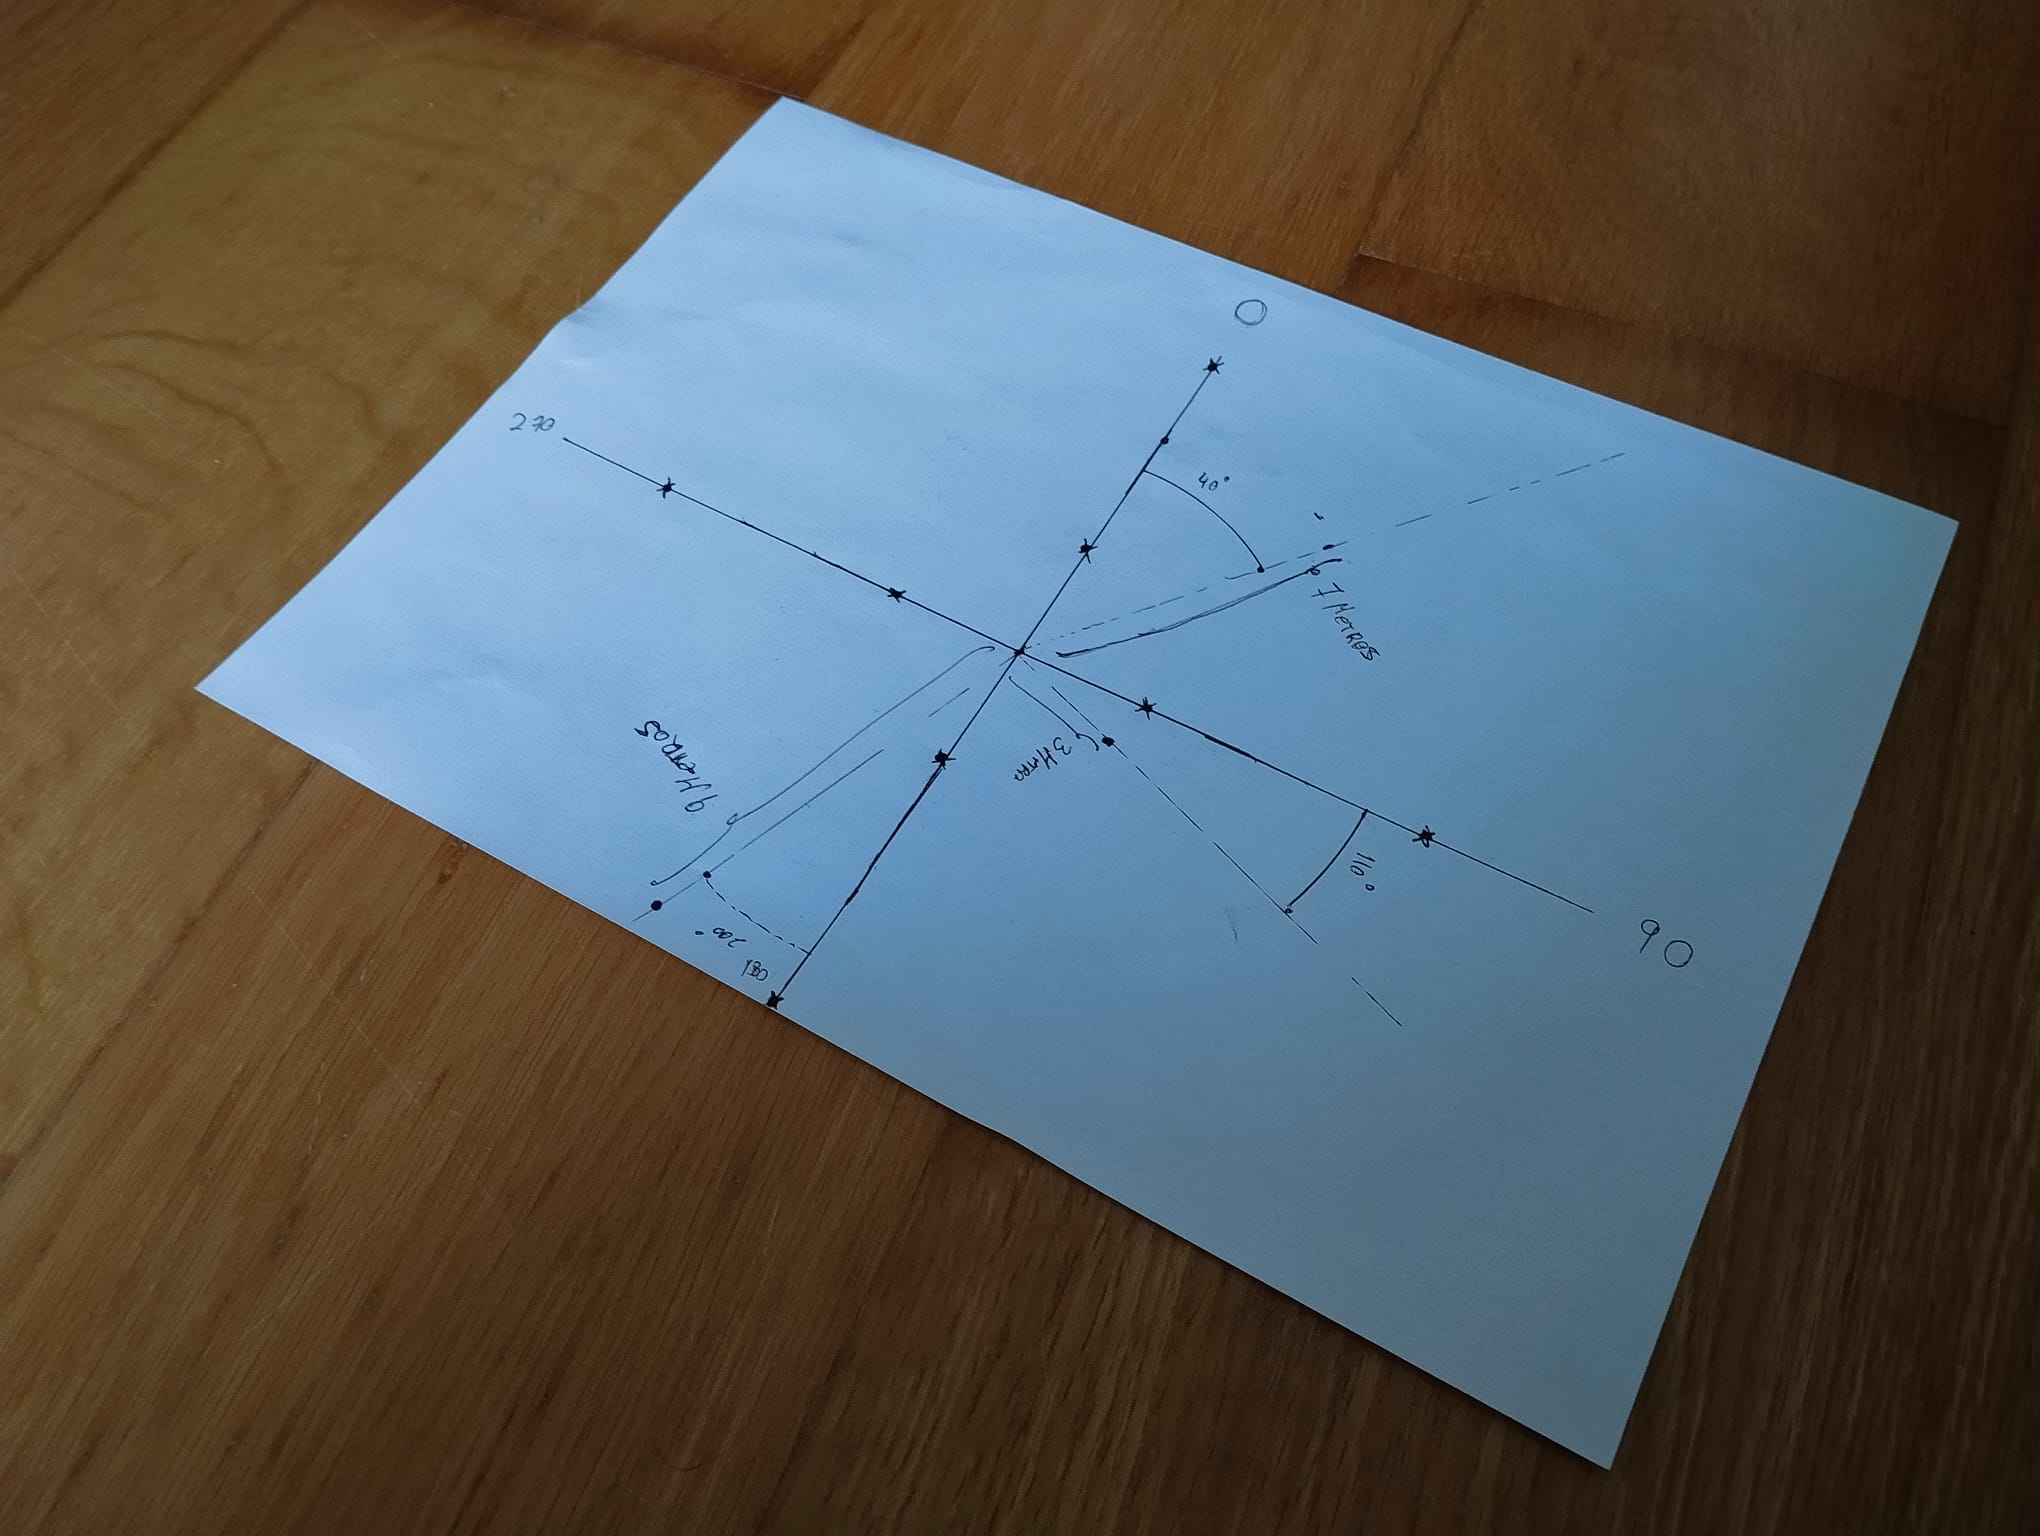 0
270
40°
7 Metros
9 Metros
3 Metro
110°
200°
180
90